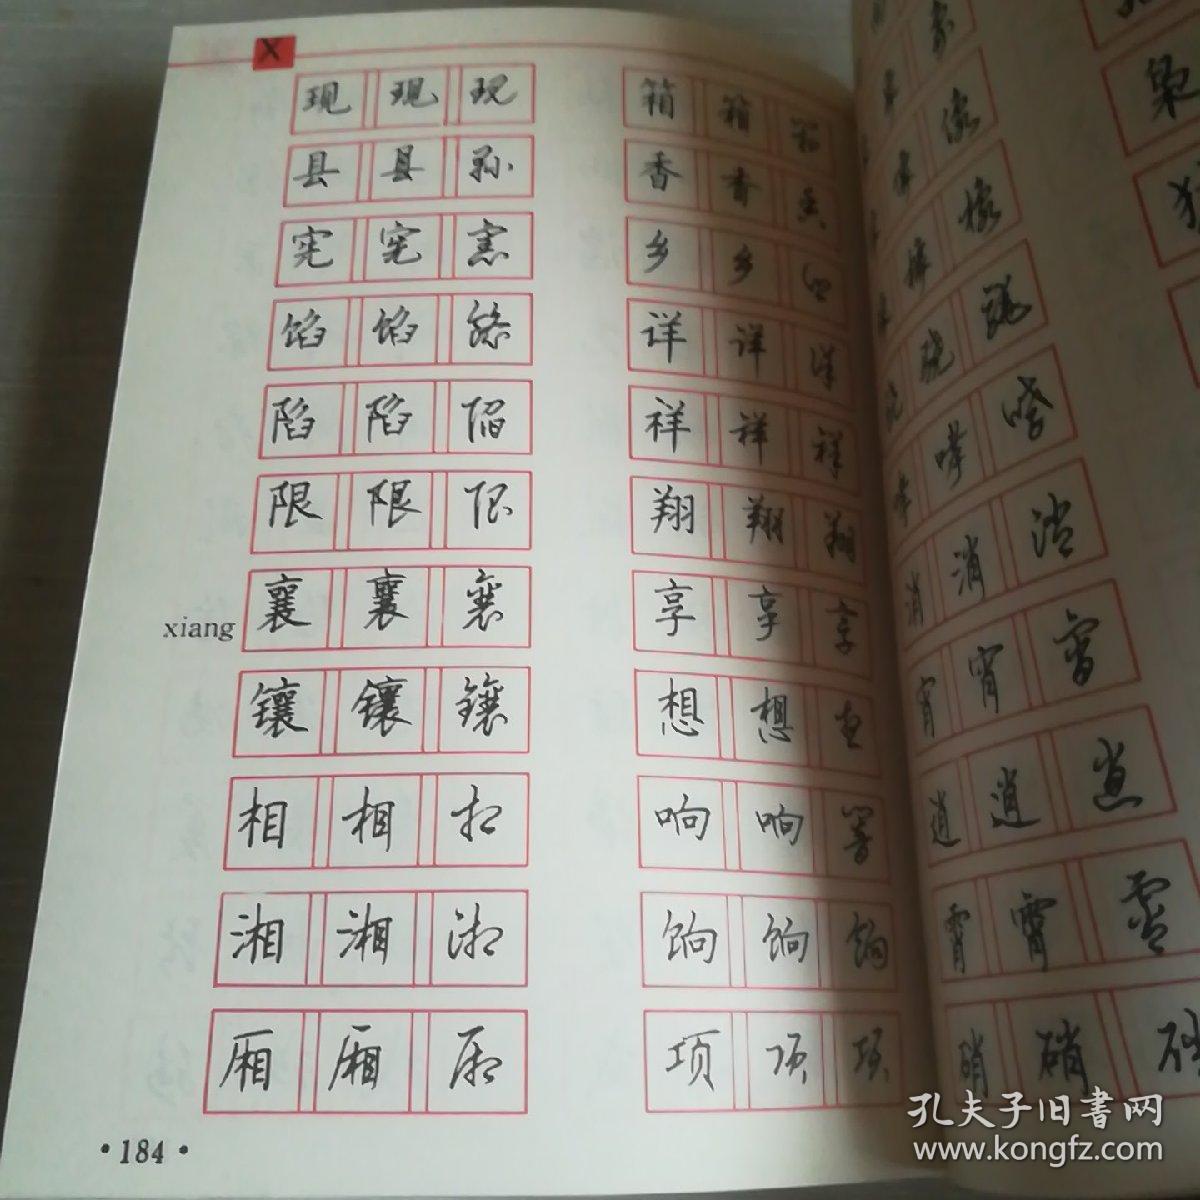 X
现 现 现
县 县 县
宪 宪 宪
馅 馅 馅
陷 陷 陷
限 限 限
xiang 襄 襄 襄
镶 镶 镶
相 相 相
湘 湘 湘
厢 厢 厢
箱 箱 箱
香 香 香
乡 乡 乡
详 详 详
祥 祥 祥
翔 翔 翔
享 享 享
想 想 想
响 响 响
饷 饷 饷
项 项 项
·184·
消 消 消
宵 宵 宵
逍 逍 逍
霄 霄 霄
硝 硝 硝
枭
孔夫子旧书网
www.kongfz.com